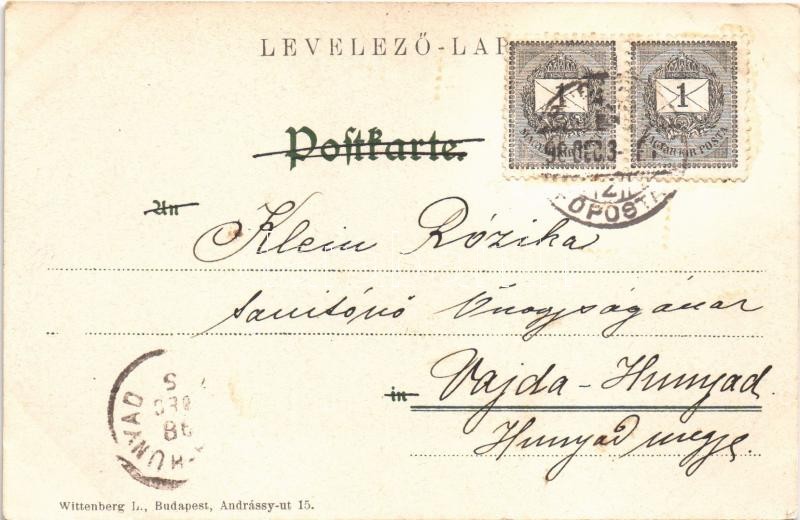 LEVELEZŐ-LAP
1 1
MAGYAR KIR. POSTA
98 DEC. 3
FŐPOSTA
Postkarte.
An
Klein Rózika
tanitónő Őnagyságának
in Vajda-Hunyad
Hunyad megye.
HUNYAD
98
DEC
5
Wittenberg L., Budapest, Andrássy-ut 15.